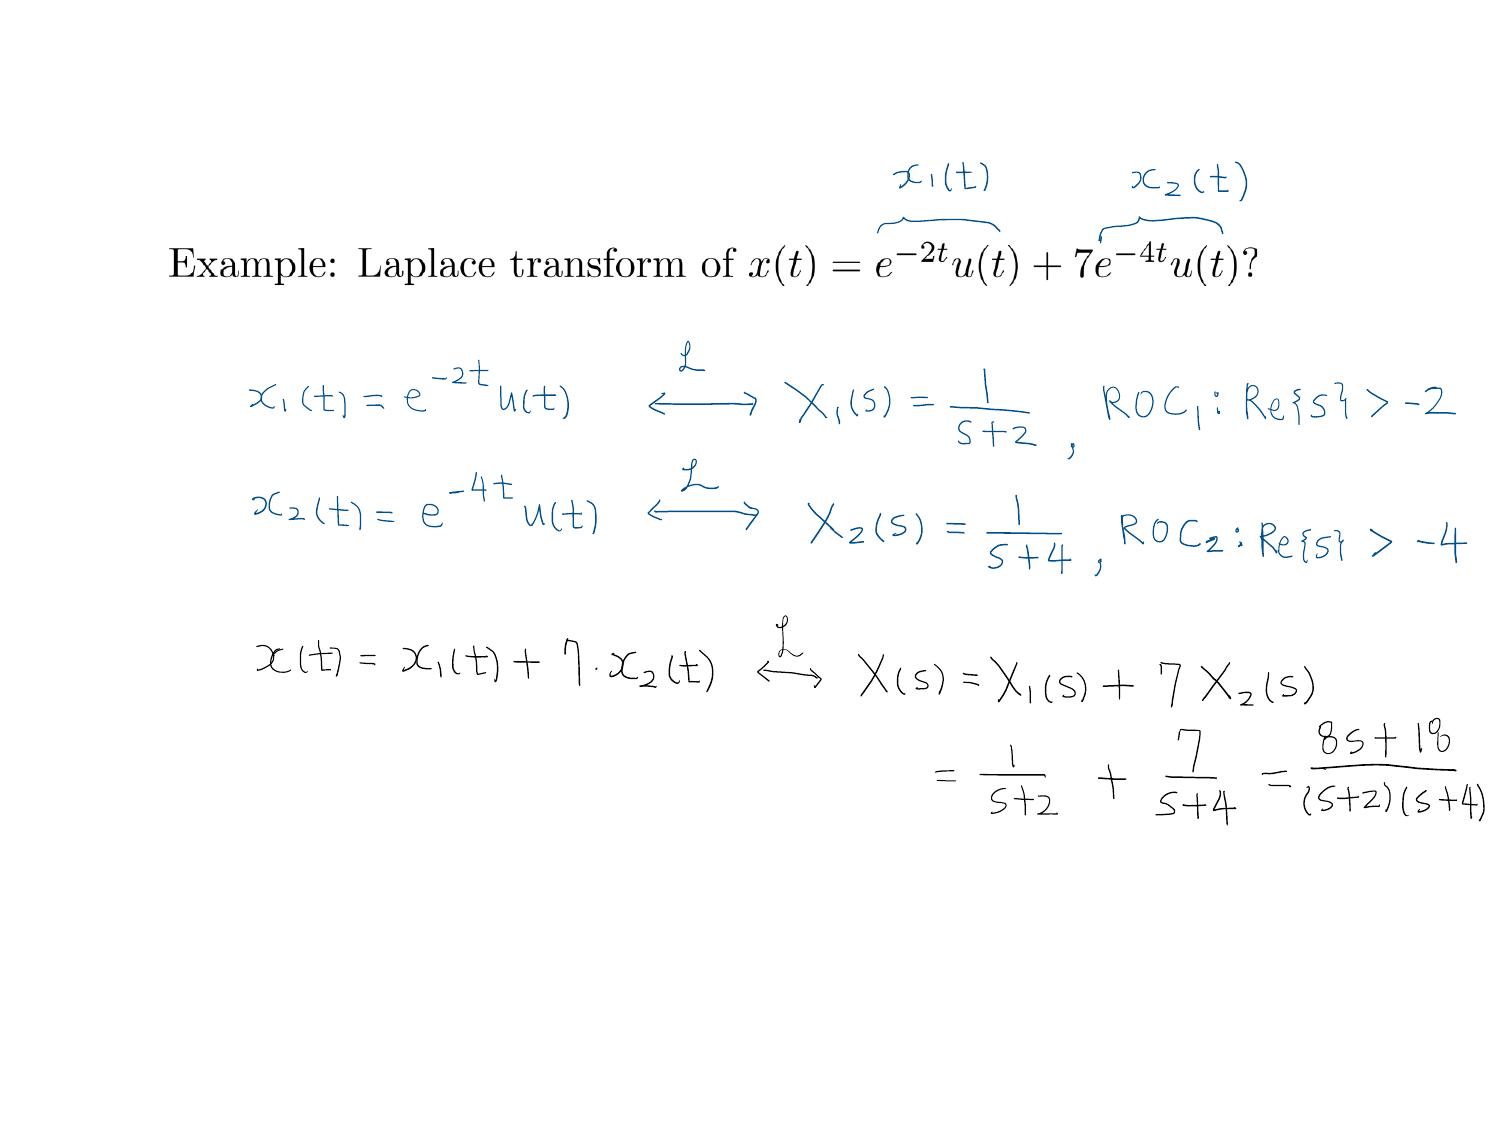 x₁(t) x₂(t)
Example: Laplace transform of x(t) = e⁻²ᵗu(t) + 7e⁻⁴ᵗu(t)?
x₁(t) = e⁻²ᵗ u(t) ⟷ℒ X₁(s) = 1/(s+2), ROC₁: Re{s} > -2
x₂(t) = e⁻⁴ᵗ u(t) ⟷ℒ X₂(s) = 1/(s+4), ROC₂: Re{s} > -4
x(t) = x₁(t) + 7·x₂(t) ⟷ℒ X(s) = X₁(s) + 7 X₂(s)
= 1/(s+2) + 7/(s+4) = (8s+18)/((s+2)(s+4))